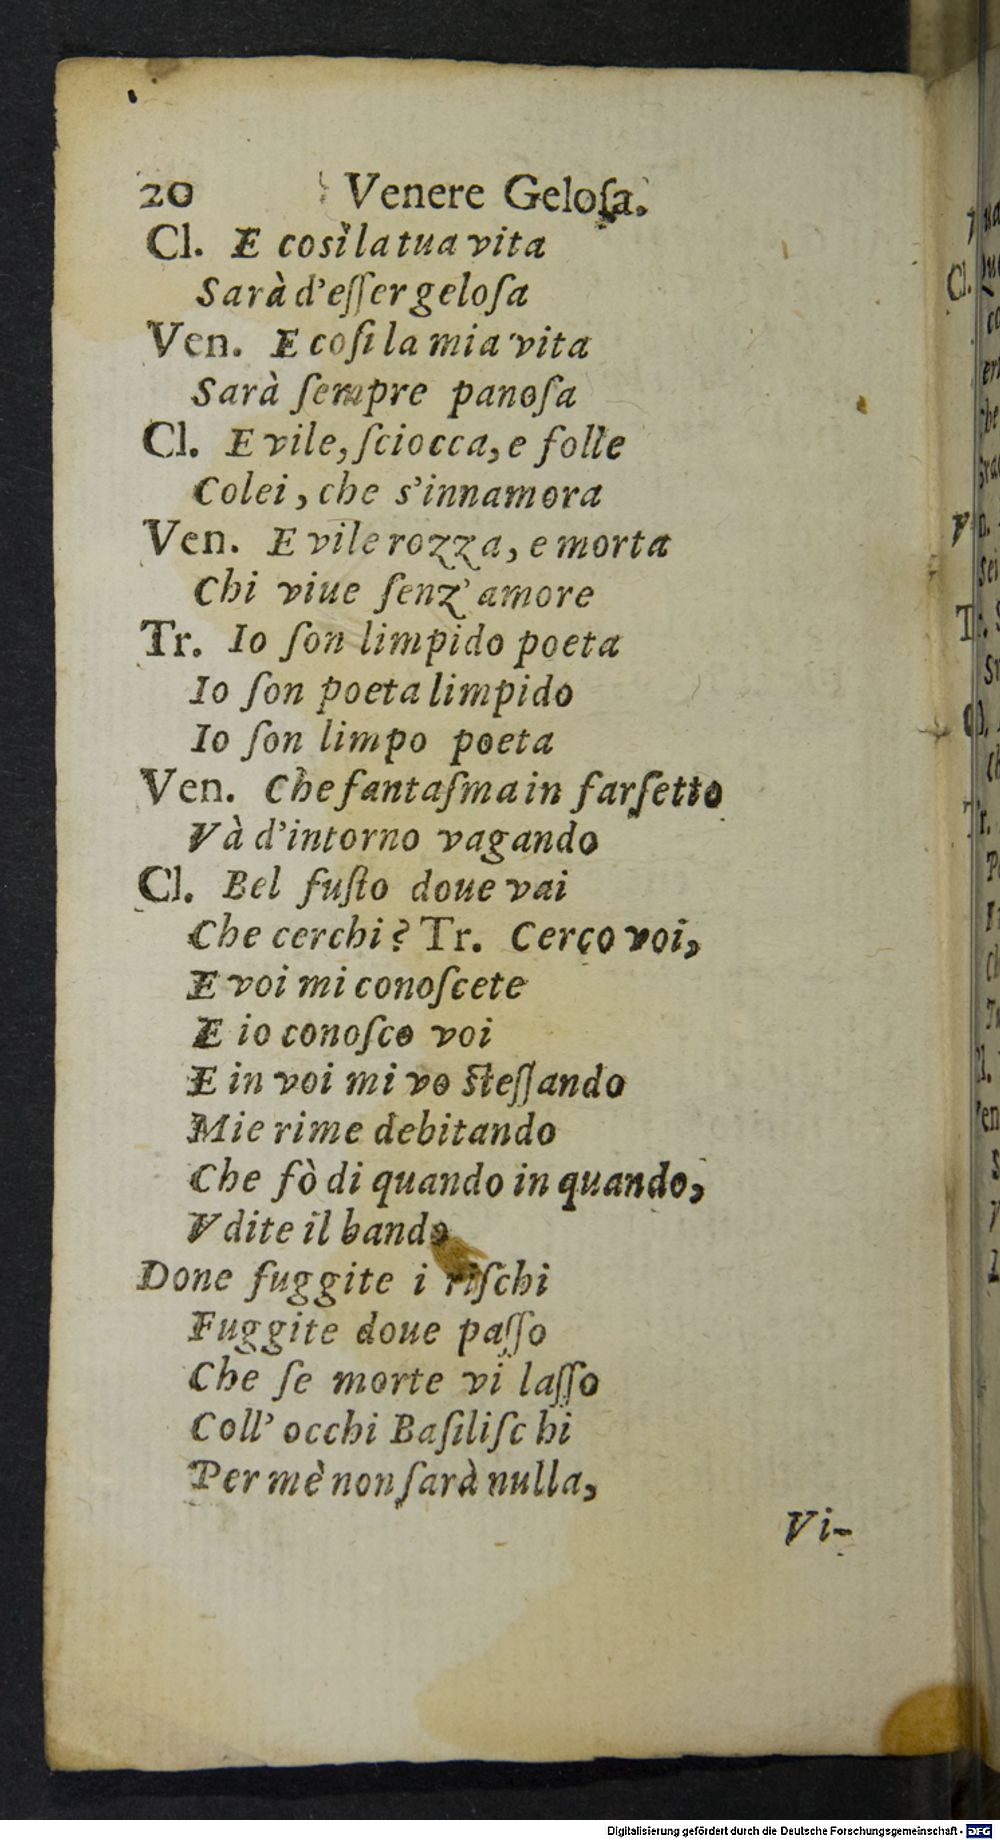 20 Venere Geloſa.
Cl. E cosìla tua vita
Sarà d'eſſer geloſa
Ven. E coſi la mia vita
Sarà ſempre panoſa
Cl. E vile, ſciocca, e folle
Colei, che s'innamora
Ven. E vile rozza, e morta
Chi viue ſenz' amore
Tr. Io ſon limpido poeta
Io ſon poeta limpido
Io ſon limpo poeta
Ven. Che fantaſma in farſetto
Và d'intorno vagando
Cl. Bel fuſto doue vai
Che cerchi? Tr. Cerco voi,
E voi mi conoſcete
E io conoſco voi
E in voi mi vo steſſando
Mie rime debitando
Che fò di quando in quando,
Vdite il bando
Done fuggite i riſchi
Fuggite doue paſſo
Che ſe morte vi laſſo
Coll' occhi Baſiliſchi
Per mè non ſarà nulla,
Vi-
Digitalisierung gefördert durch die Deutsche Forschungsgemeinschaft - DFG